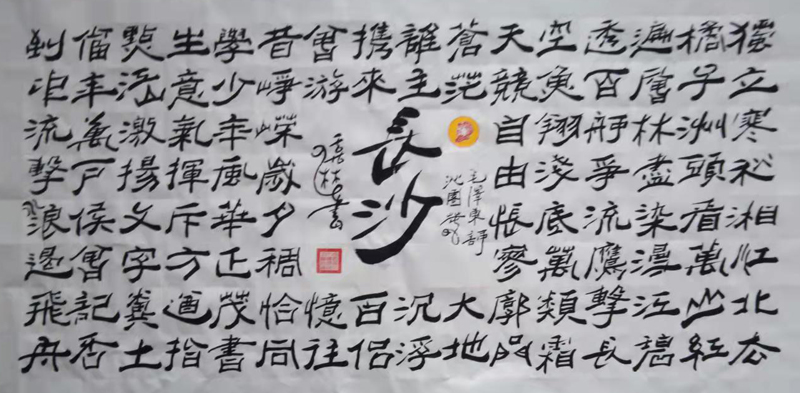 獨立寒秋湘江北去
橘子洲頭看萬山紅
遍層林盡染漫江碧
透百舸爭流鷹擊長
空魚翔淺底萬類霜
天競自由悵寥廓問
蒼茫大地
誰主沉浮
携來百侶
曾游憶往
昔崢嶸歲月稠恰同
學少年風華正茂書
生意氣揮斥方遒指
點江山激揚文字糞土
當年萬户侯曾記否
到中流擊浪遏飛舟
毛澤東詞
沁園春
長沙